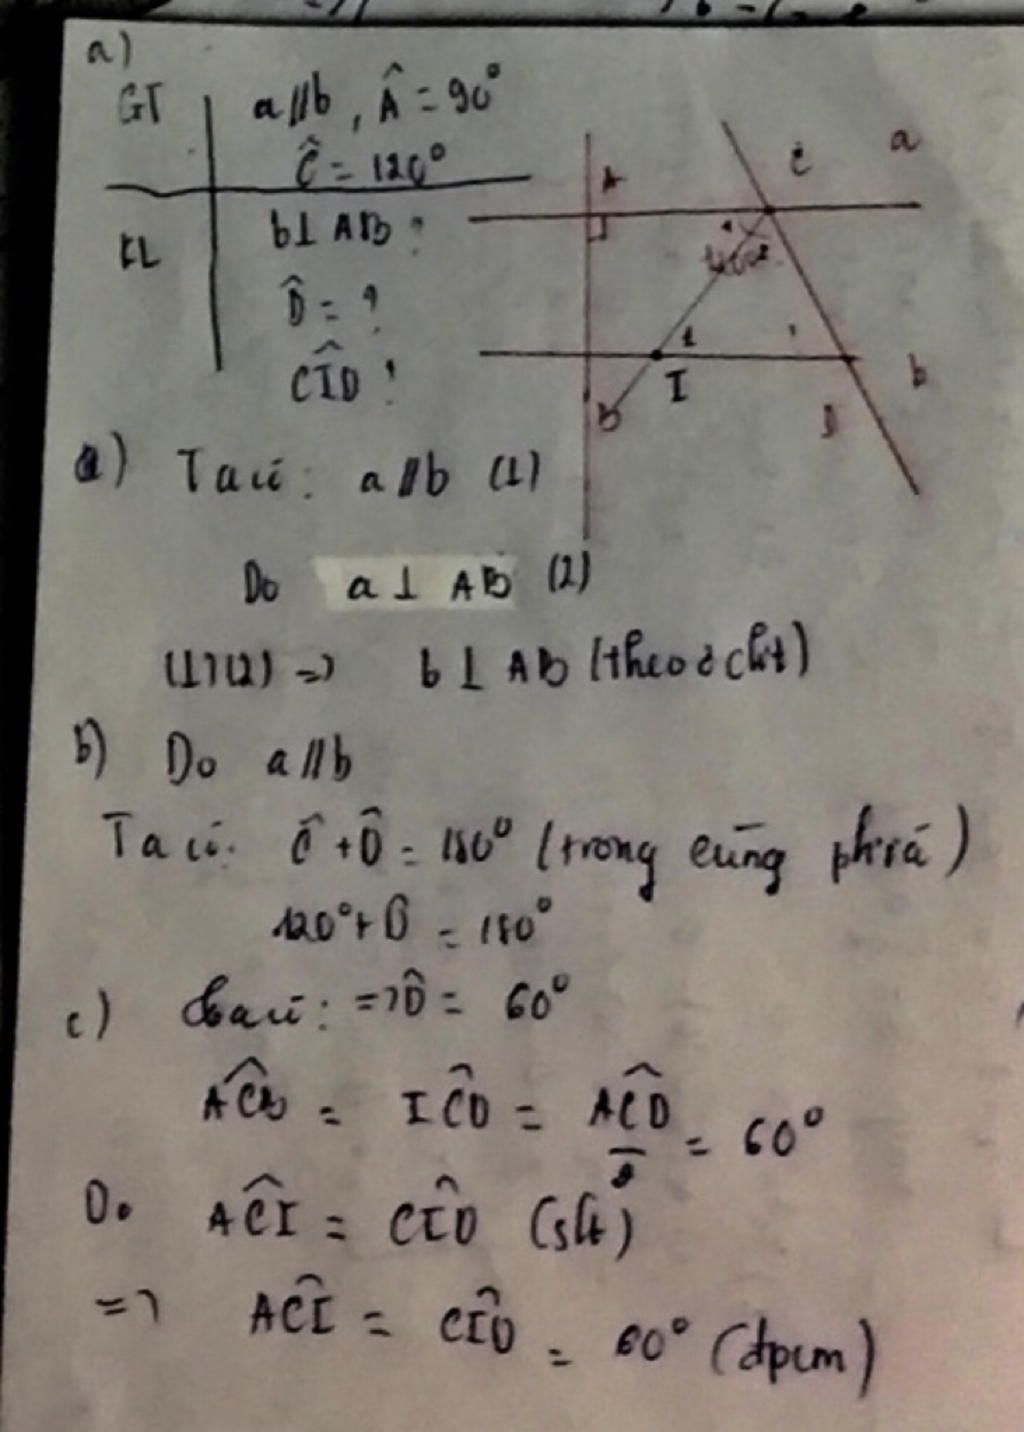 a)
GT a//b, Â = 90°
Ĉ = 120°
KL b⊥AB ?
D̂ = ?
CÎD ?
A C a
120°
1
B I D b
a) Ta có: a//b (1)
Do a⊥AB (2)
(1)(2) => b⊥AB (theo t/c)
b) Do a//b
Ta có: Ĉ + D̂ = 180° (trong cùng phía)
120° + D̂ = 180°
c) Ta có: => D̂ = 60°
AĈI = IĈD = AĈD/2 = 60°
Do AĈI = CÎD (slt)
=> AĈI = CÎD = 60° (đpcm)